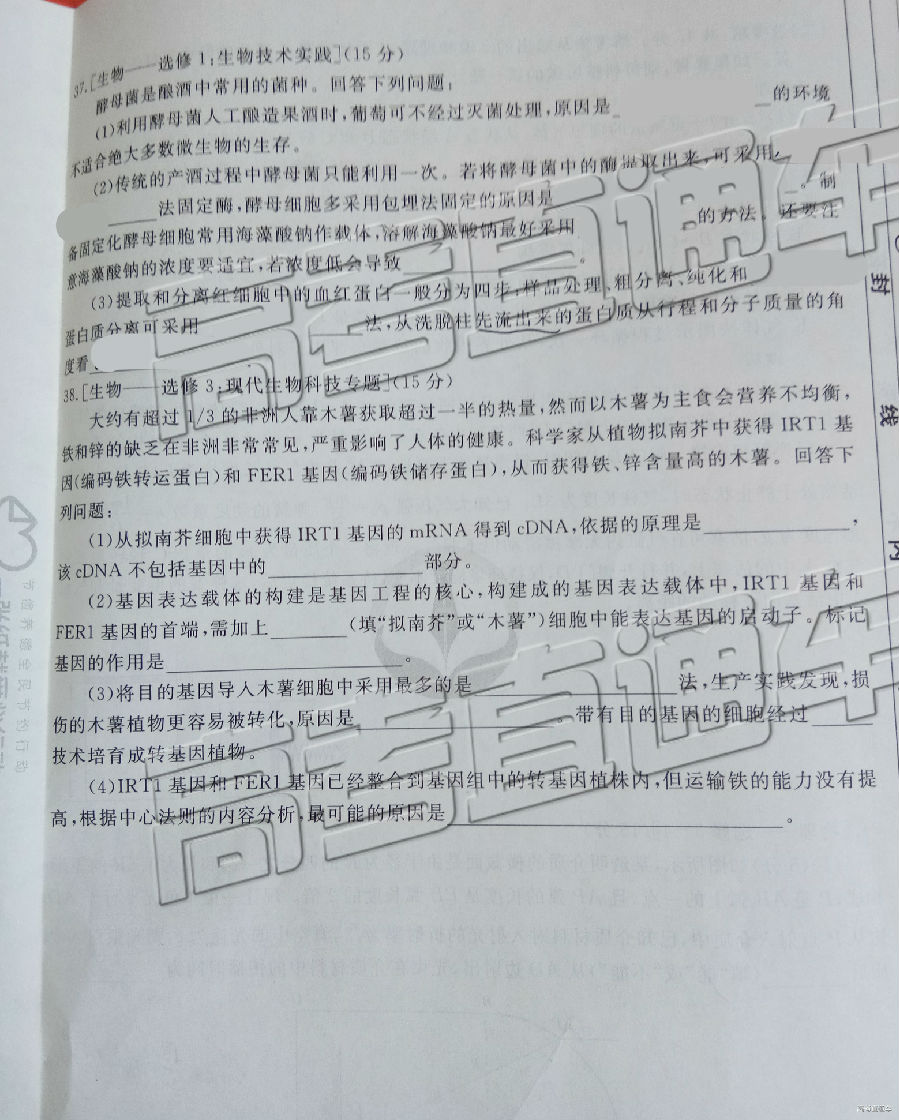 37.[生物——选修1:生物技术实践](15分)
酵母菌是酿酒中常用的菌种。回答下列问题:
(1)利用酵母菌人工酿造果酒时,葡萄可不经过灭菌处理,原因是______的环境
不适合绝大多数微生物的生存。
(2)传统的产酒过程中酵母菌只能利用一次。若将酵母菌中的酶提取出来,可采用
______法固定酶,酵母细胞多采用包埋法固定的原因是______。制
备固定化酵母细胞常用海藻酸钠作载体,溶解海藻酸钠最好采用______的方法。还要注
意海藻酸钠的浓度要适宜,若浓度低会导致______。
(3)提取和分离红细胞中的血红蛋白一般分为四步:样品处理、粗分离、纯化和
蛋白质分离可采用______法,从洗脱柱先流出来的蛋白质从行程和分子质量的角
度看
38.[生物——选修3:现代生物科技专题](15分)
大约有超过1/3的非洲人靠木薯获取超过一半的热量,然而以木薯为主食会营养不均衡,
铁和锌的缺乏在非洲非常常见,严重影响了人体的健康。科学家从植物拟南芥中获得IRT1基
因(编码铁转运蛋白)和FER1基因(编码铁储存蛋白),从而获得铁、锌含量高的木薯。回答下
列问题:
(1)从拟南芥细胞中获得IRT1基因的mRNA得到cDNA,依据的原理是______,
该cDNA不包括基因中的______部分。
(2)基因表达载体的构建是基因工程的核心,构建成的基因表达载体中,IRT1基因和
FER1基因的首端,需加上______(填“拟南芥”或“木薯”)细胞中能表达基因的启动子。标记
基因的作用是______。
(3)将目的基因导人木薯细胞中采用最多的是______法,生产实践发现,损
伤的木薯植物更容易被转化,原因是______。带有目的基因的细胞经过______
技术培育成转基因植物。
(4)IRT1基因和FER1基因已经整合到基因组中的转基因植株内,但运输铁的能力没有提
高,根据中心法则的内容分析,最可能的原因是______。
封
线
内
高考直通车
高考直通车